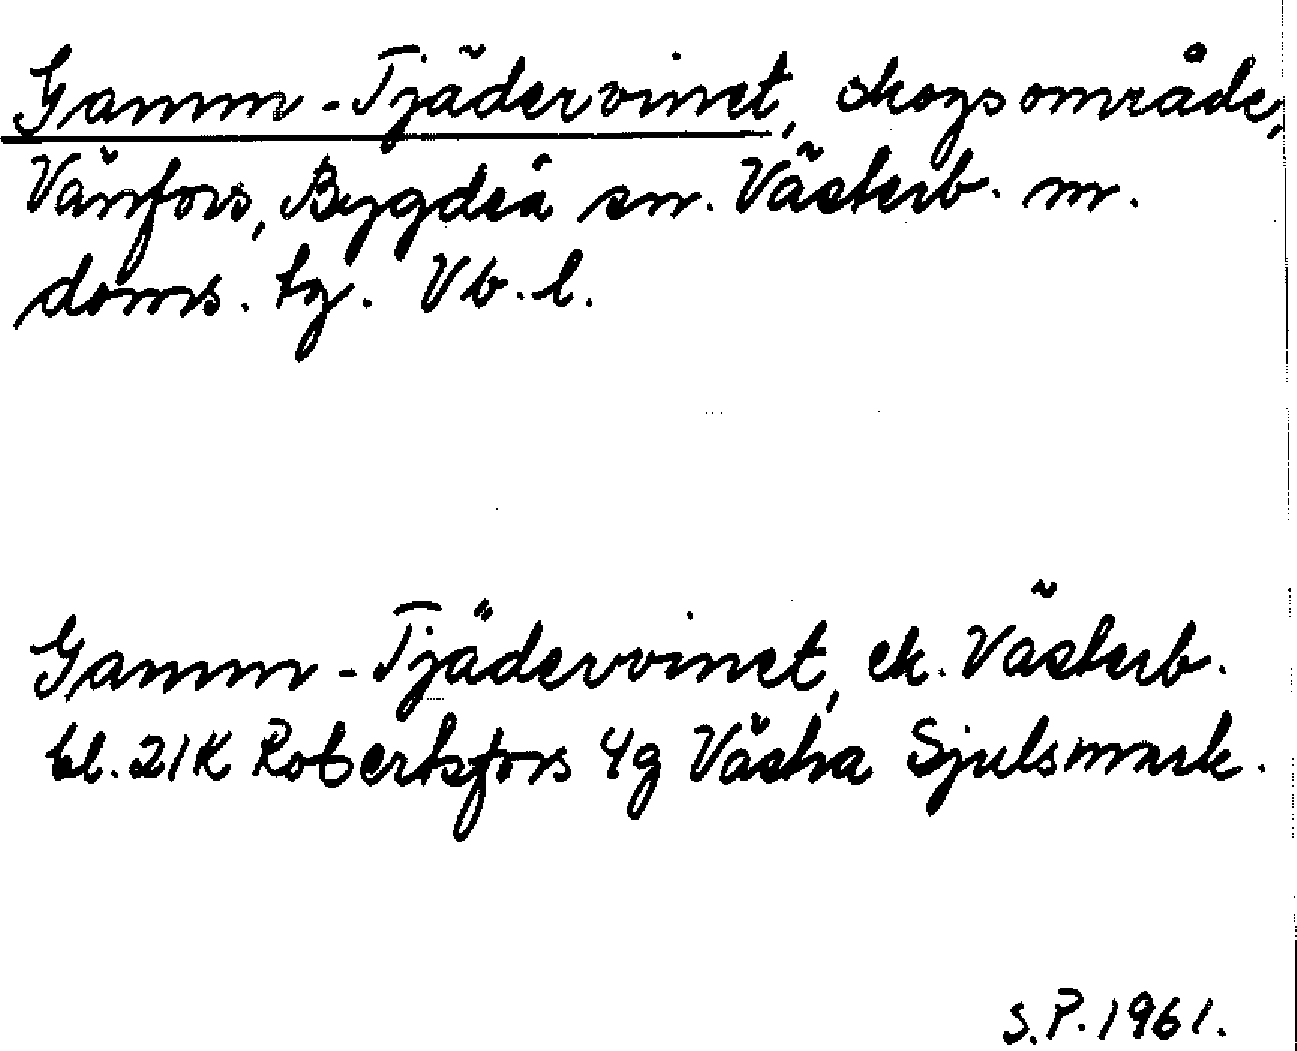 Gamm-Tjädervinet, skogsområde,
Vänfors, Bygdeå sn. Västerb. m.
doms. tg. Vb. l.
Gamm-Tjädervinet, ek. Västerb.
bl. 21K Robertsfors 4g Västra Sjulsmark.
S.P. 1961.